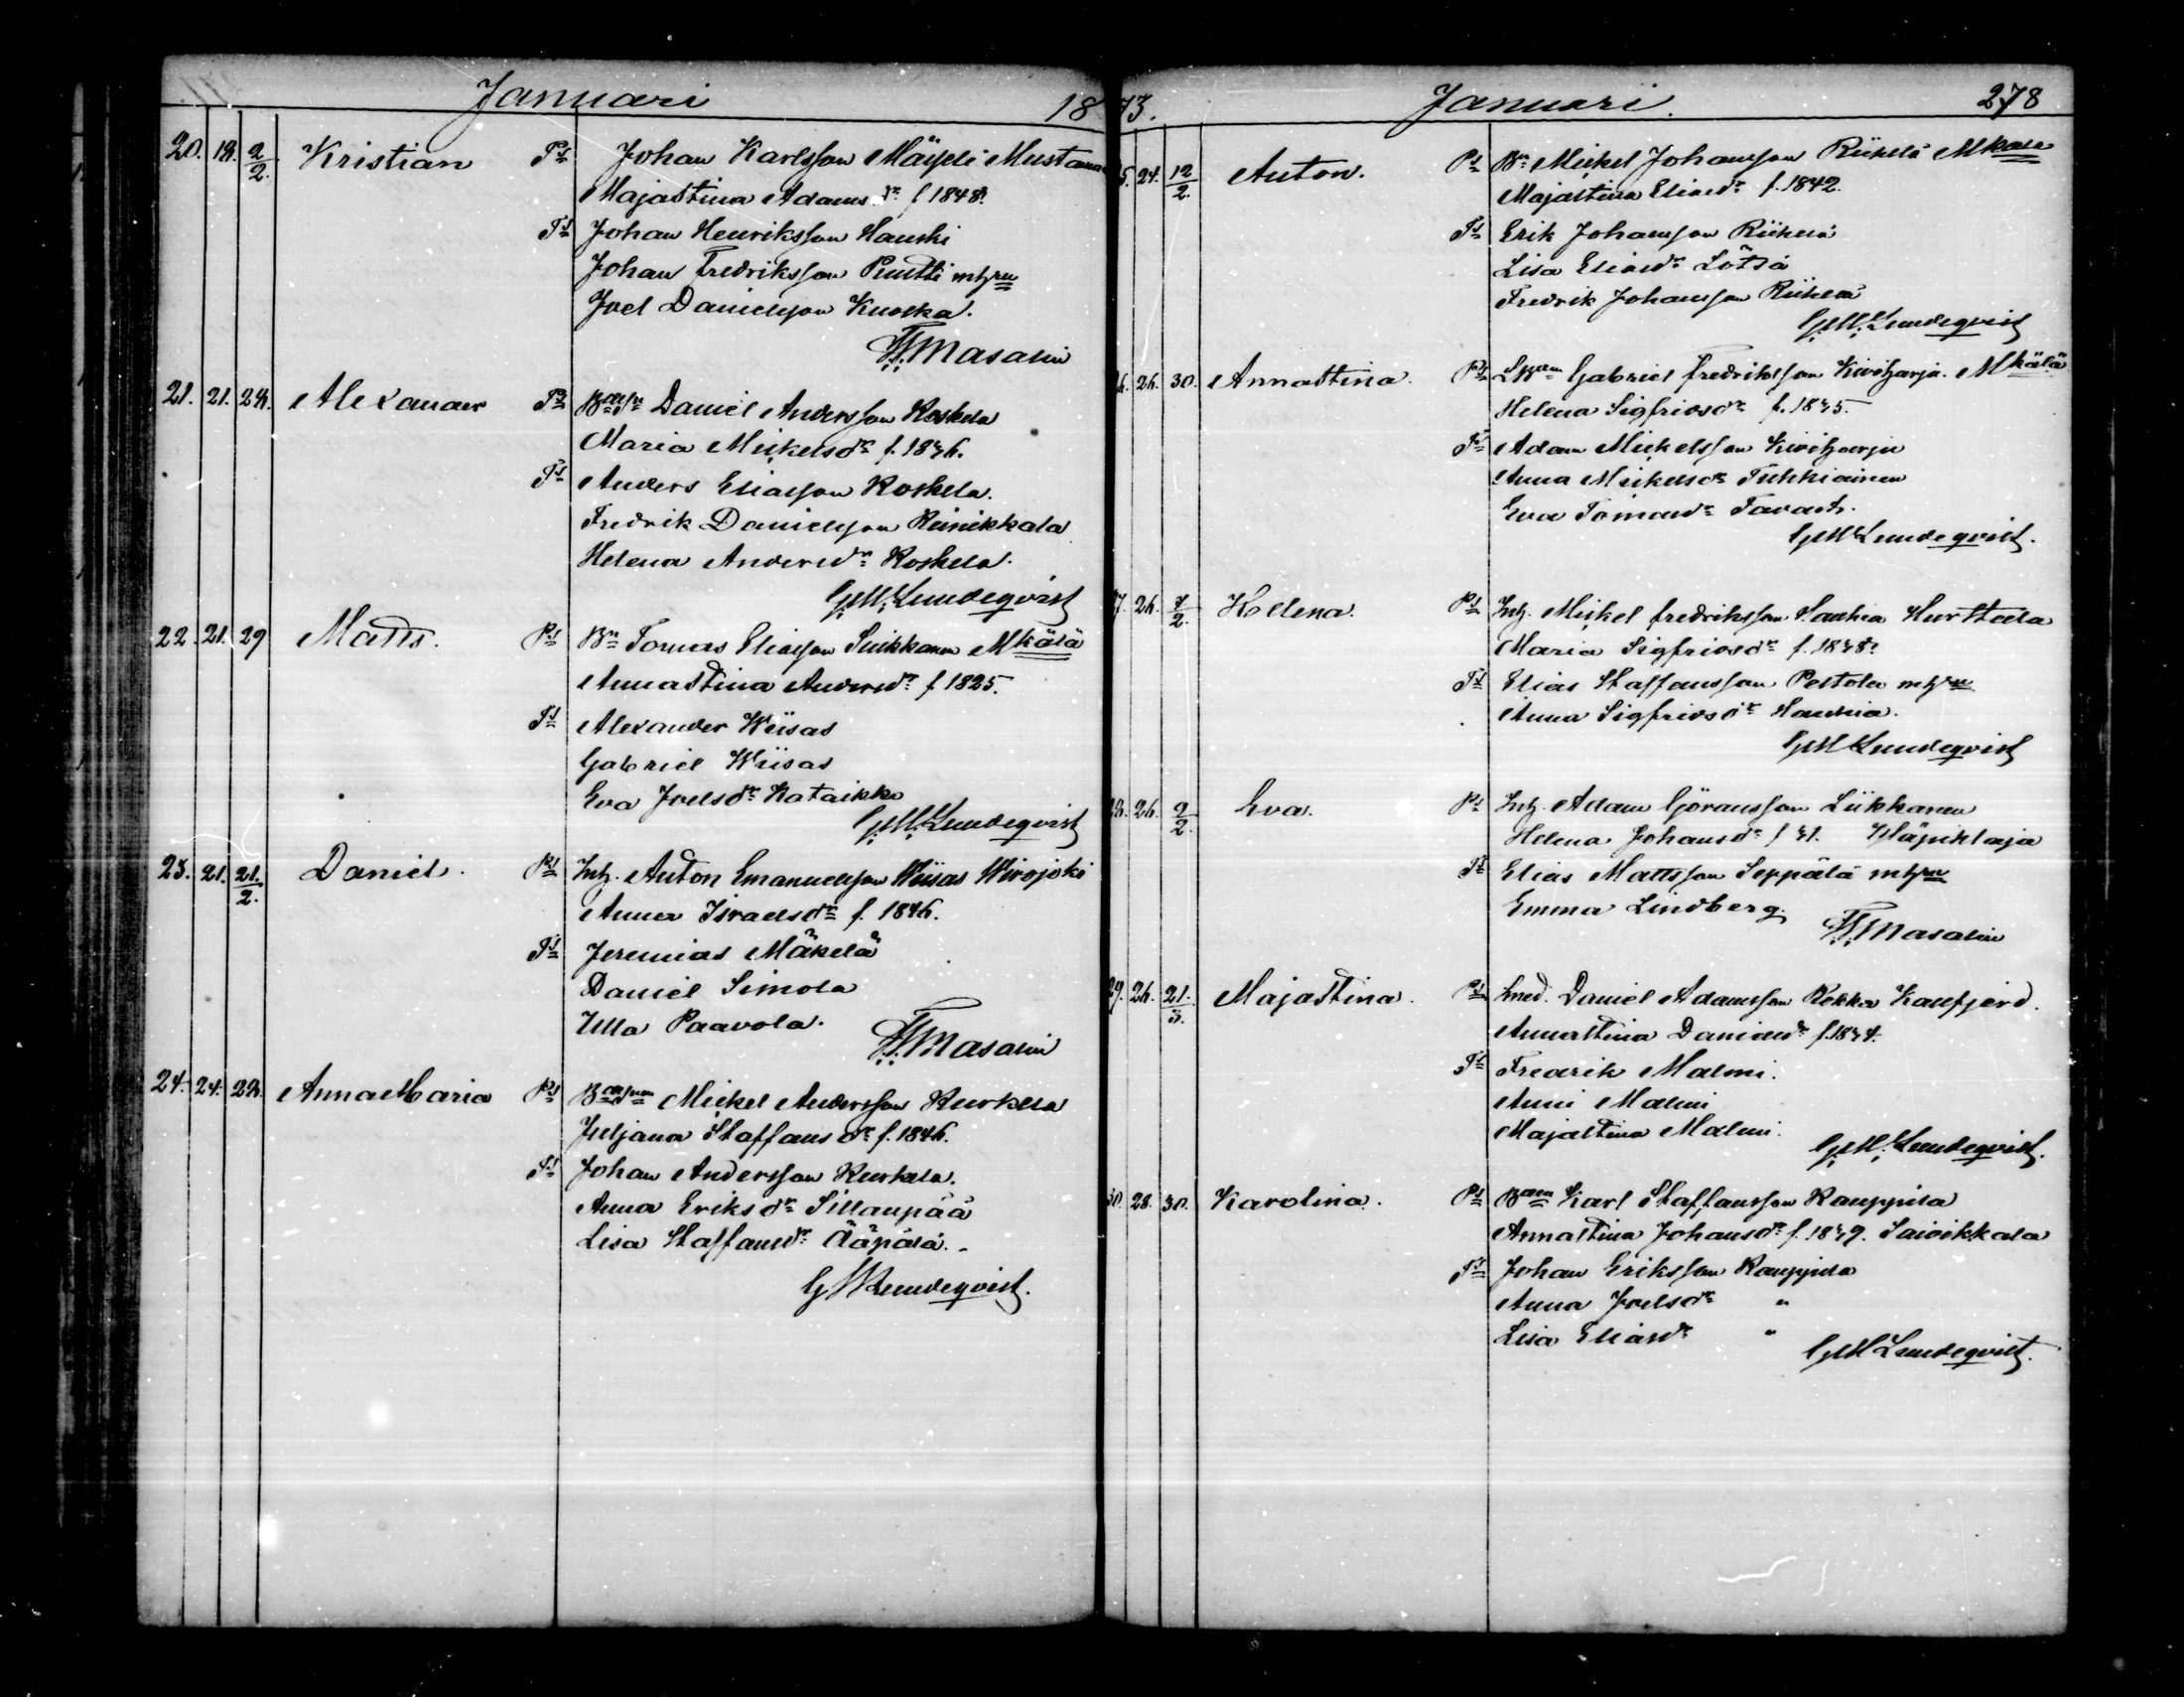 Januari 18
20. 18. 2/2. Kristian Ps Johan Karlsson Mäyrli Mustama
Majastina Adamsdr f 1848.
Ts Johan Henriksson Hanski
Johan Fredriksson Puntti mhrn
Joel Danielsson Kuokka.
Masalin
21. 21. 26. Alexander Ps Daniel Andersson Koskela
Maria Mickelsdr f. 1846.
Ts Anders Eliasson Koskela.
Fredrik Danielsson Reinikkala
Helena Andersdr Koskela.
GM Lundeqvist
22. 21. 29 Matts. Ps Bn Tomas Eliasson Suikkanen Mkälä
Annastina Andersdr f 1825.
Ts Alexander Wiisas
Gabriel Wiisas
Eva Joelsdr Kataikko
GM Lundeqvist
23. 21. 21/2. Daniel. Ps Inh. Anton Emanuelsson Wiisas Wirojoki
Anna Israelsdr f. 1846.
Ts Jeremias Mäkelä
Daniel Simola
Ulla Paavola.
Masalin
24. 24. 26. Anna Maria Ps Mickel Andersson Kurkela
Juljana Staffansdr f. 1846.
Ts Johan Andersson Kurkela.
Anna Eriksdr Sillanpää
Lisa Staffansdr Ääpälä.
GM Lundeqvist.
73. Januari. 278
5. 24. 12/2. Anton. Ps Bn Mickel Johansson Riikelä
Majastina Eliasdr f. 1842.
Ts Erik Johansson Riikelä
Lisa Eliasdr Lötjä
Fredrik Johansson Riikelä
GM Lundeqvist
6. 26. 30. Annastina. Ps Gabriel Fredriksson Kiviharju. Mkälä
Helena Sigfridsdr f. 1845.
Ts Adam Mickelsson Kiviharju
Anna Mickelsdr Tuhkiainen
Eva Tomasdr Tavast.
GM Lundeqvist.
7. 26. 7/2. Helena. Ps Inh. Mickel Fredriksson Haukia Hurttala
Maria Sigfridsdr f. 1848.
Ts Elias Staffansson Peltola mhrn
Anna Sigfridsdr Haukia.
GM Lundeqvist
28. 26. 2/2. Eva. Ps Inh. Adam Göransson Liikkanen
Helena Johansdr f 41. Häyriklaja
Ts Elias Mattsson Seppälä mhrn
Emma Lindberg.
Masalin
29. 26. 21/3. Majastina. Ps Daniel Adamsson Kokka
Annastina Danielsdr f. 1844.
Ts Fredrik Malmi.
Anni Malmi
Majastina Malmi.
GM Lundeqvist.
30. 28. 30. Karolina. Ps Karl Staffansson Kauppila
Annastina Johansdr f. 1849. Saivikkala
Ts Johan Eriksson Kauppila
Anna Joelsdr "
Lisa Eliasdr "
GM Lundeqvist.